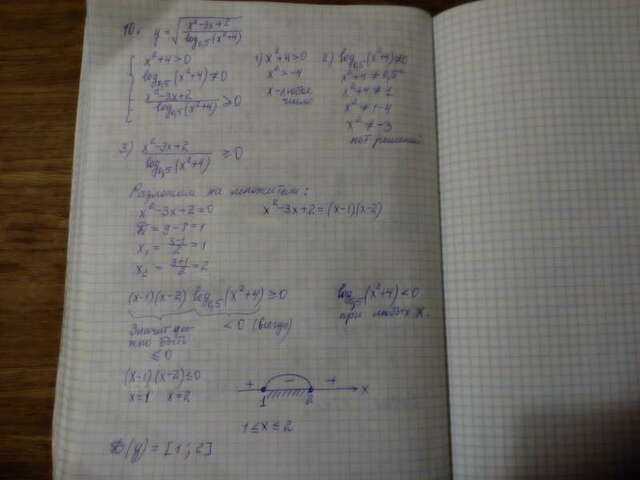 10. y = √((x²-3x+2)/(log₀,₅(x²+4)))
{ x²+4>0
log₀,₅(x²+4)≠0
(x²-3x+2)/(log₀,₅(x²+4)) ≥0
1) x²+4>0
x²>-4
x-любое
число
2) log₀,₅(x²+4)≠0
x²+4≠0,5⁰
x²+4≠1
x²≠1-4
x²≠-3
нет решений
3) (x²-3x+2)/(log₀,₅(x²+4)) ≥0
Разложим на множители:
x²-3x+2=0
D=9-8=1
x₁=(3-1)/2=1
x₂=(3+1)/2=2
x²-3x+2=(x-1)(x-2)
(x-1)(x-2) log₀,₅(x²+4)≥0
Значит дол-
жно быть
≤0
<0 (всегда)
log₀,₅(x²+4)<0
при любых x.
(x-1)(x-2)≤0
x=1 x=2
+ - + x
1 2
1≤x≤2
D(y)=[1;2]